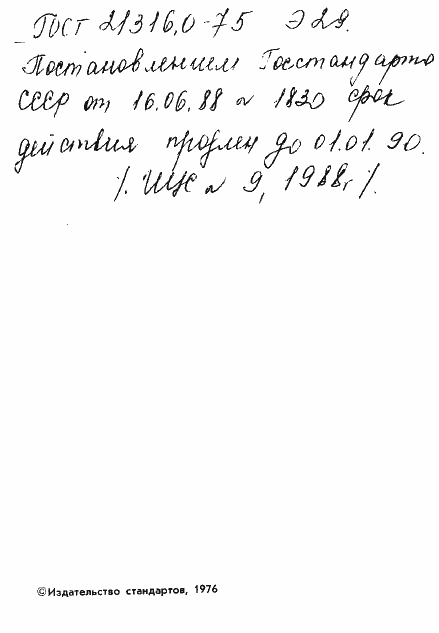 ГОСТ 21316.0-75 Э29.
Постановлением Госстандарта
СССР от 16.06.88 № 1830 срок
действия продлен до 01.01.90.
/. ИУС № 9, 1988г /.
©Издательство стандартов, 1976